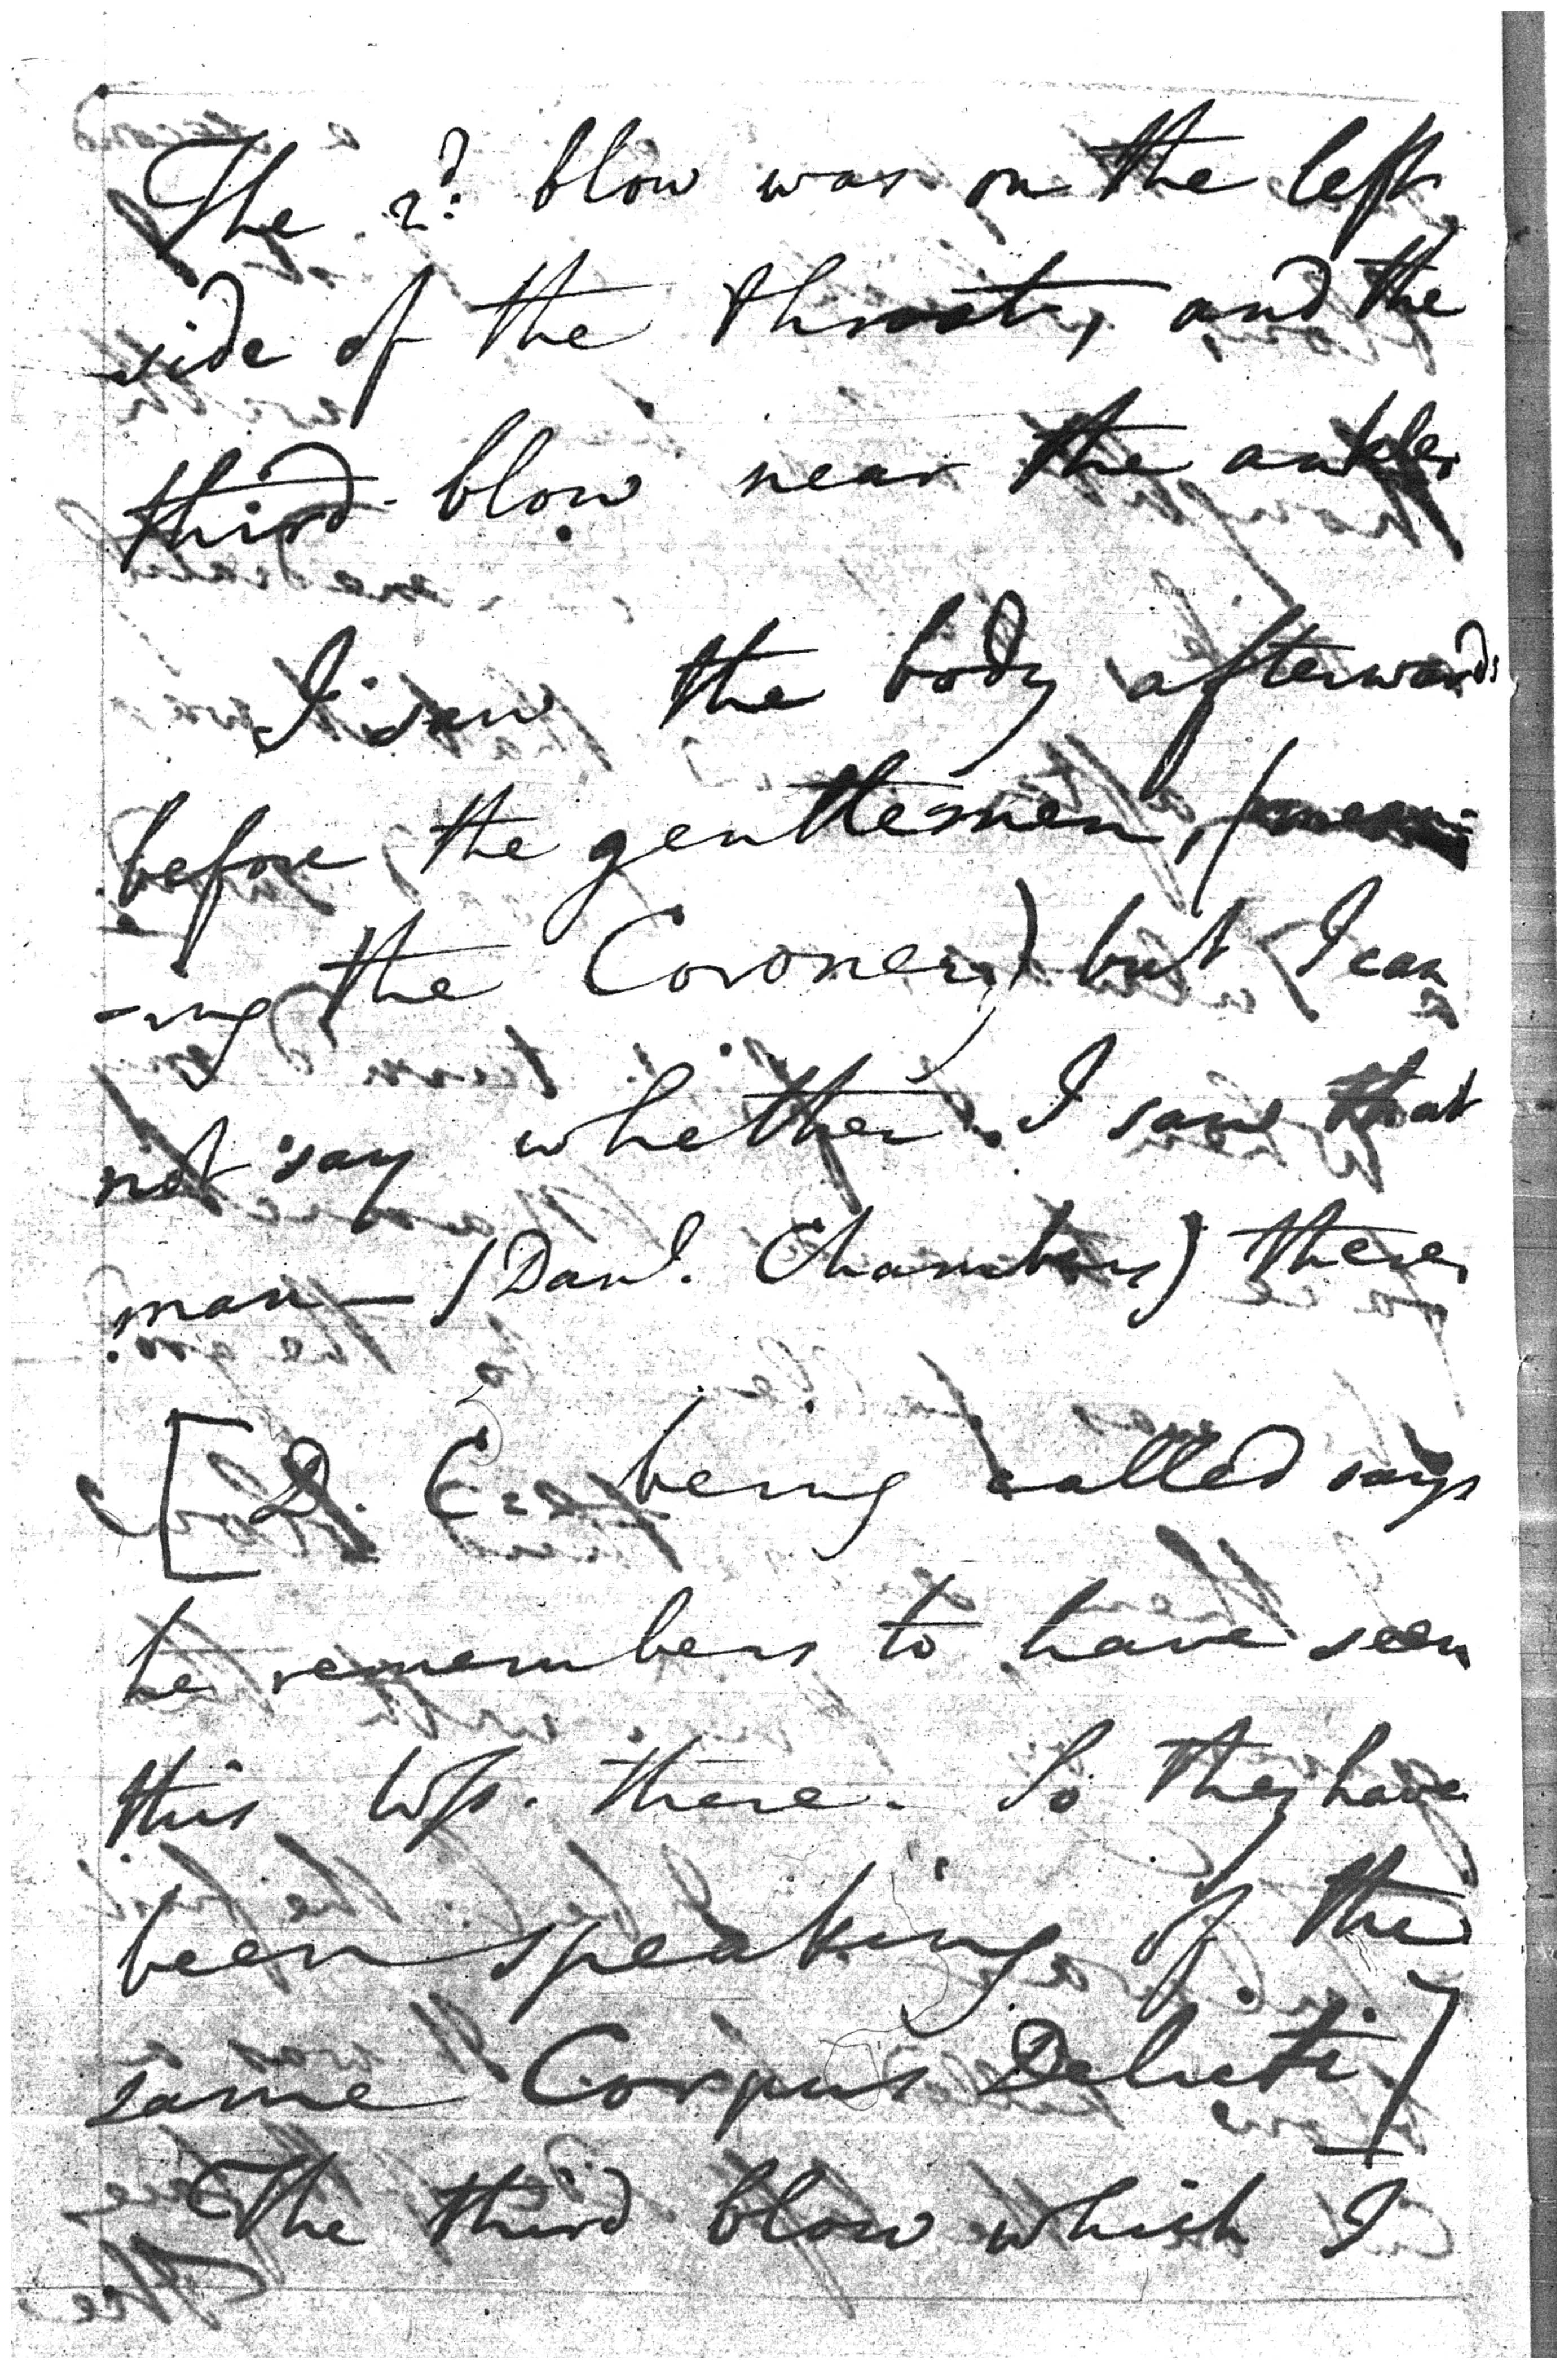 The 2d. blow was on the left
side of the throat, and the
third blow near the ankle.
I saw the body afterwards
before the gentlemen, (mean-
-ing the Coroner,) but I can
not say whether I saw that
man — (Danl. Chambers) there.
[D. C: being called says
he remembers to have seen
this Wss. there. So they have
been speaking of the
same Corpus Delicti]
The third blow which I